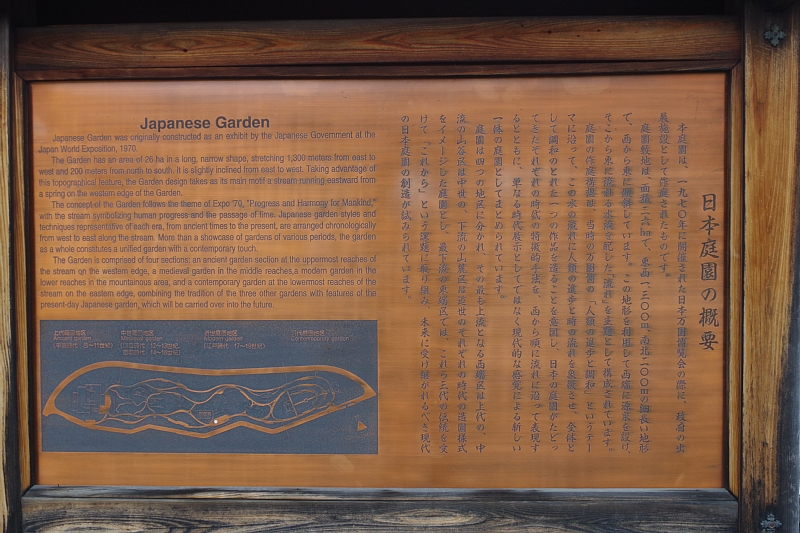 Japanese Garden
Japanese Garden was originally constructed as an exhibit by the Japanese Government at the
Japan World Exposition, 1970.
The Garden has an area of 26 ha in a long, narrow shape, stretching 1,300 meters from east to
west and 200 meters from north to south. It is slightly inclined from east to west. Taking advantage of
this topographical feature, the Garden design takes as its main motif a stream running eastward from
a spring on the western edge of the Garden.
The concept of the Garden follows the theme of Expo '70, "Progress and Harmony for Mankind,"
with the stream symbolizing human progress and the passage of time. Japanese garden styles and
techniques representative of each era, from ancient times to the present, are arranged chronologically
from west to east along the stream. More than a showcase of gardens of various periods, the garden
as a whole constitutes a unified garden with a contemporary touch.
The Garden is comprised of four sections: an ancient garden section at the uppermost reaches of
the stream on the western edge, a medieval garden in the middle reaches,a modern garden in the
lower reaches in the mountainous area, and a contemporary garden at the lowermost reaches of the
stream on the eastern edge, combining the tradition of the three other gardens with features of the
present-day Japanese garden, which will be carried over into the future.
上代庭園地区
Ancient garden
(平安時代 8〜11世紀)
中世庭園地区
Medieval garden
近世庭園地区
Modern garden
(江戸時代 17〜19世紀)
現代庭園地区
Contemporary garden
日本庭園の概要
本庭園は、一九七〇年に開催された日本万国博覧会の際に、政府の出
展施設として作庭されたものです。
庭園敷地は、面積二六haで、東西一、三〇〇m、南北二〇〇mの細長い地形
で、西から東に傾斜しています。この地形を利用して西端に源泉を設け、
そこから東に流れる水流を配した「流れ」を主題として構成されています。
庭園の作庭意図は、当時の万国博の「人類の進歩と調和」というテー
マに沿って、この水の流れに人類の進歩と時の流れを象徴させ、全体と
して調和のとれた一つの作品を造ることを意図し、日本の庭園がたどっ
てきたそれぞれの時代の特徴的手法を、西から順に流れに沿って表現す
るとともに、単なる時代展示としてではなく現代的な感覚による新しい
一体の庭園としてまとめられています。
庭園は四つの地区に分かれ、その最も上流となる西端区は上代の、中
流の山谷区は中世の、下流の山麓区は近世のそれぞれの時代の造園様式
をイメージした庭園とし、最下流の東端区では、これら三代の伝統を受
けて「これから」という課題に取り組み、未来に受け継がれるべき現代
の日本庭園の創造が試みられています。